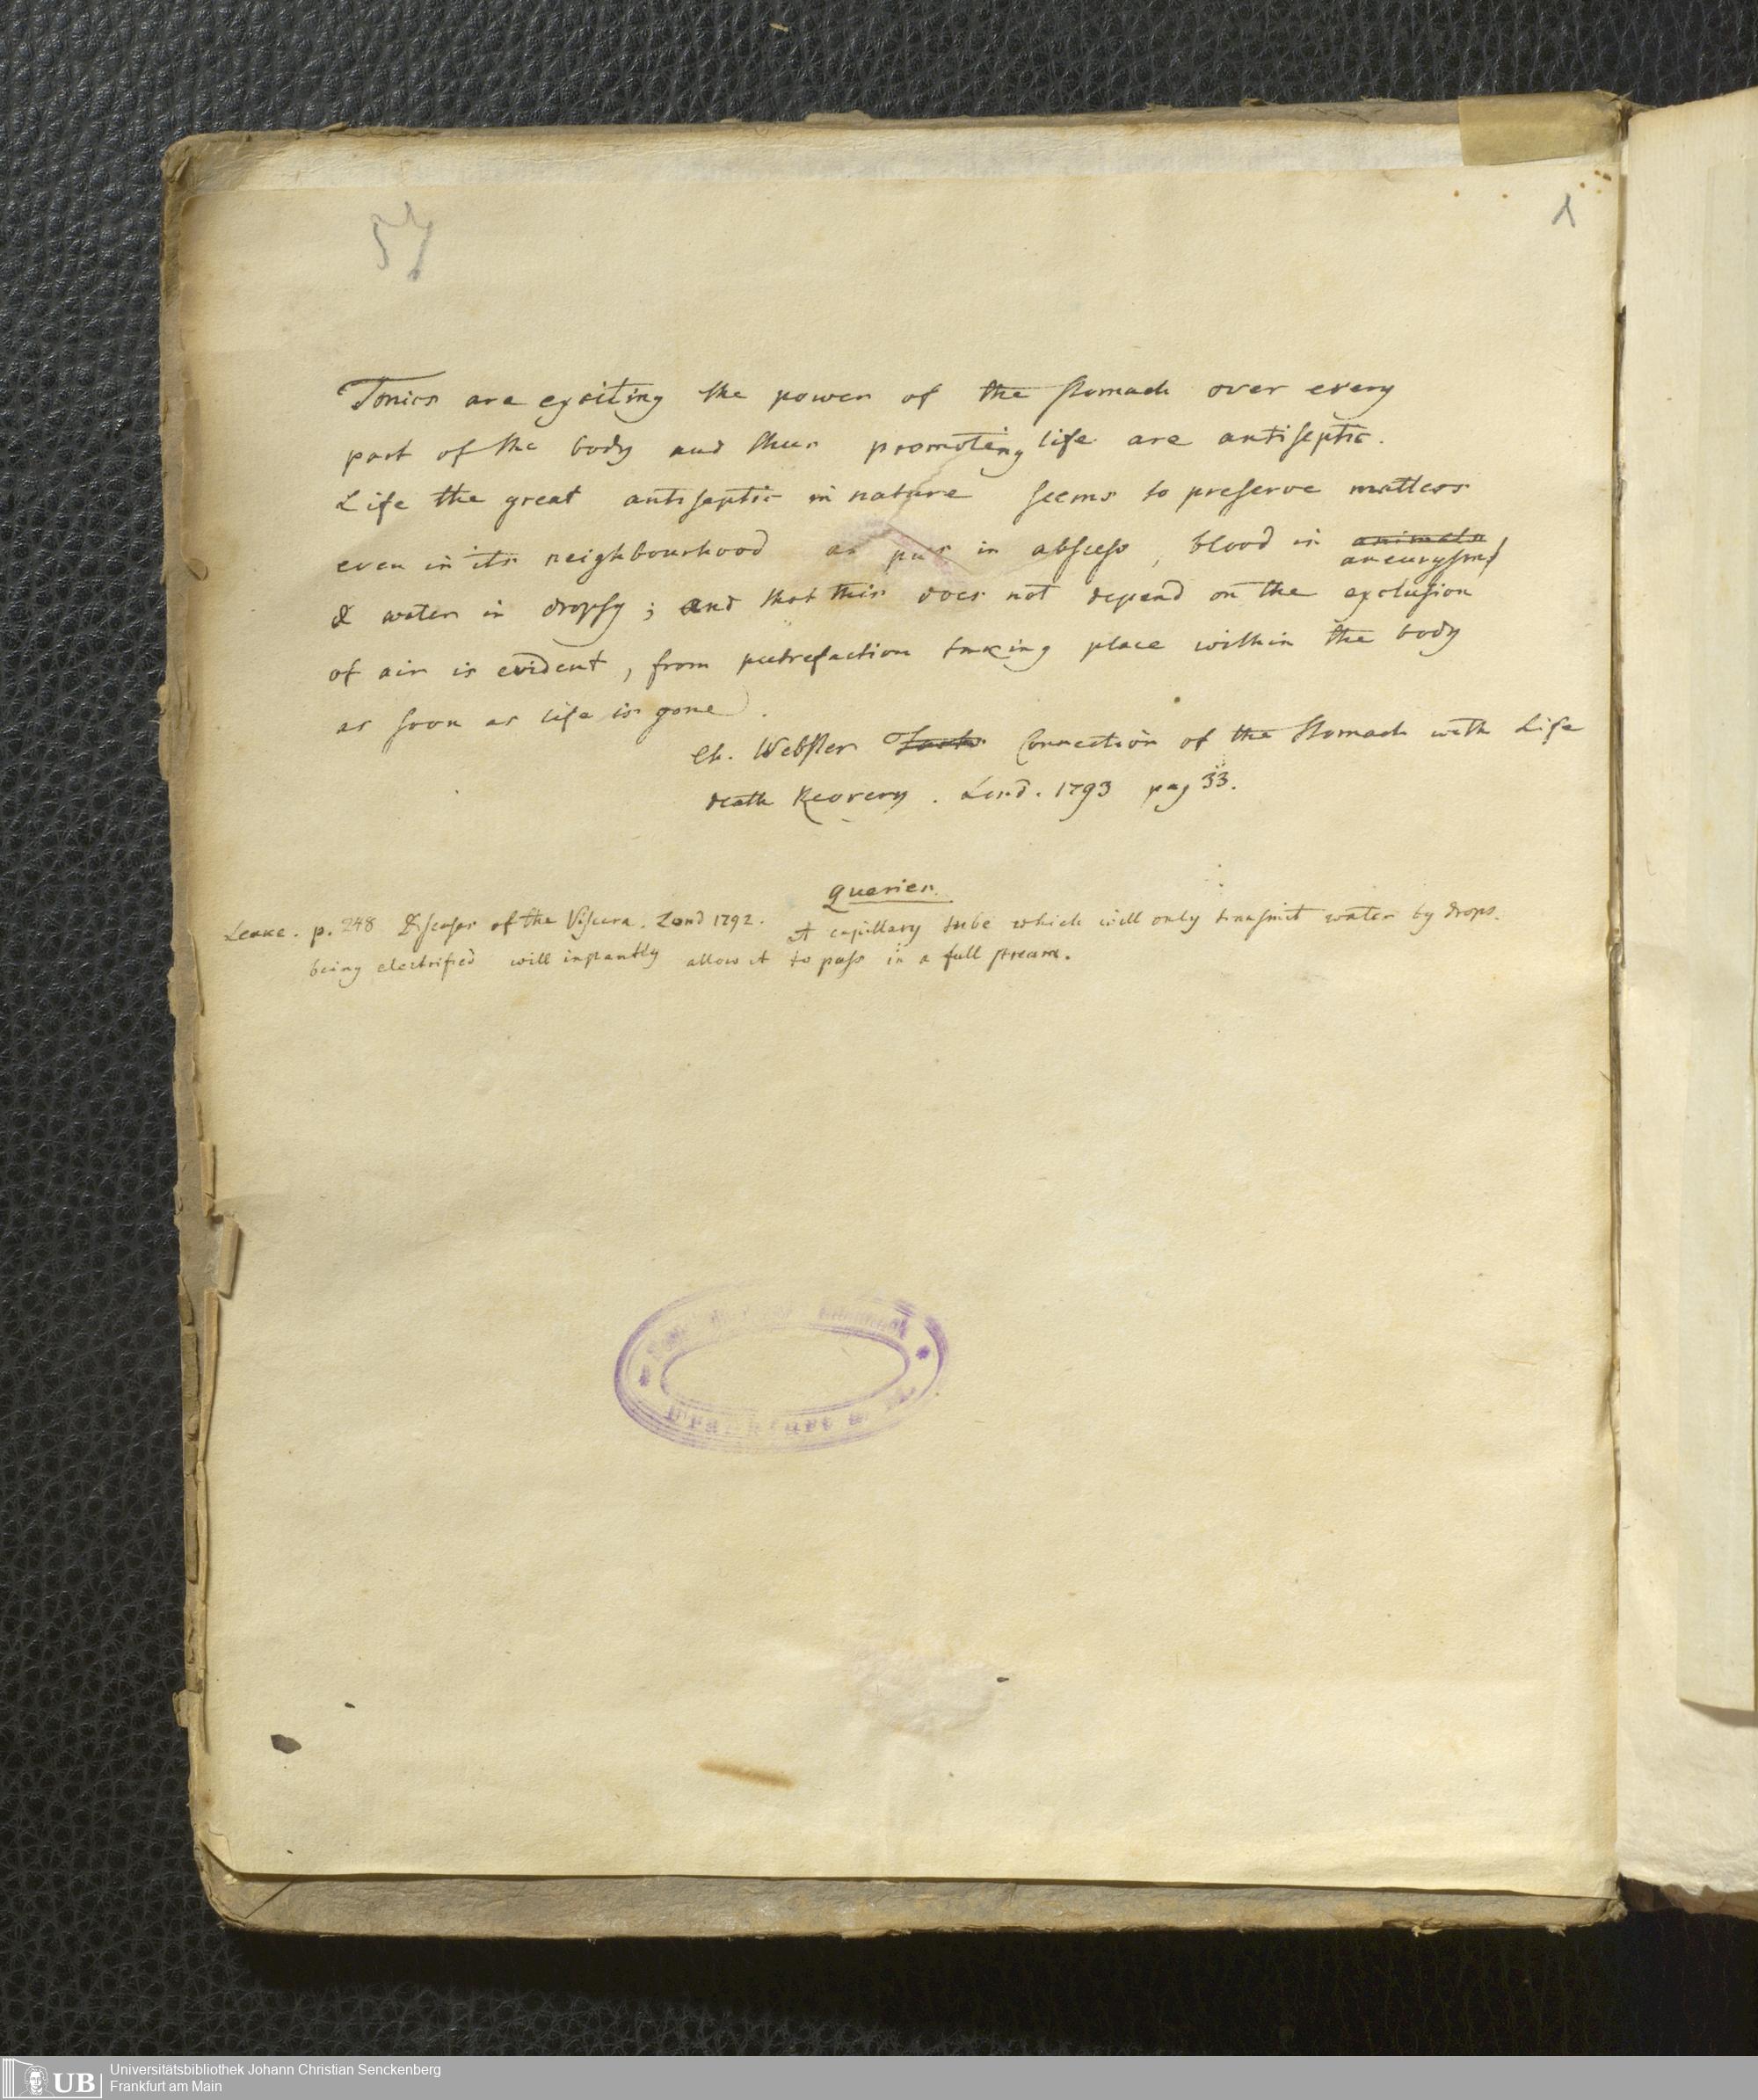 57
1
Tonics are exciting the power of the stomach over every
part of the body and thus promoting life are antiseptic.
Life the great antiseptic in nature seems to preserve matters
even in its neighbourhood as pus in abscess, blood in animals
aneurysms
& water in dropsy; and that this does not depend on the exclusion
of air is evident, from putrefaction taking place within the body
as soon as life is gone.
Ch. Webster Connection of the Stomach with Life
death Recovery. Lond. 1793 pag 33.
Queries.
Leake. p. 248 Diseases of the Viscera. Lond 1792. A capillary tube which will only transmit water by drops.
being electrified will instantly allow it to pass in a full stream.
Frankfurt a.
UB Universitätsbibliothek Johann Christian Senckenberg
Frankfurt am Main